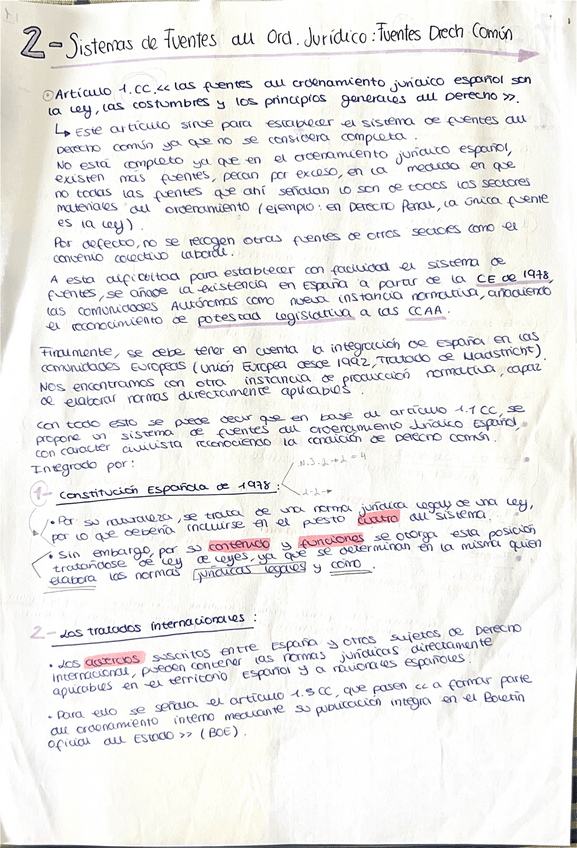 2- Sistemas de Fuentes del Ord. Jurídico: Fuentes Drech Común
Artículo 1. CC << las fuentes del ordenamiento jurídico español son
la ley, las costumbres y los principios generales del Derecho >>.
↳ Este artículo sirve para establecer el sistema de fuentes del
Derecho común ya que no se considera completa.
No está completo ya que en el ordenamiento jurídico español,
existen más fuentes, pecan por exceso, en la medida en que
no todas las fuentes que ahí señalan lo son de todos los sectores
materiales del ordenamiento (ejemplo: en Derecho Penal, la única fuente
es la ley).
Por defecto, no se recogen otras fuentes de otros sectores como el
convenio colectivo laboral.
A esta dificultad para establecer con facilidad el sistema de
fuentes, se añade la existencia en España a partir de la CE de 1978,
las comunidades Autónomas como nueva instancia normativa, añadiendo
el reconocimiento de potestad legislativa a las CCAA.
Finalmente, se debe tener en cuenta la integración de España en las
comunidades Europeas (Unión Europea desde 1992, Tratado de Maastricht).
Nos encontramos con otra instancia de producción normativa, capaz
de elaborar normas directamente aplicables.
Con todo esto se puede decir que en base al artículo 1.1 CC, se
propone un sistema de fuentes del ordenamiento Jurídico Español,
con carácter civilista reconociendo la condición de Derecho común.
Integrado por:
1- Constitución Española de 1978:
• Por su naturaleza, se trata de una norma jurídica legal de una ley,
por lo que debería incluirse en el puesto cuatro del sistema.
• Sin embargo, por su contenido y funciones se otorga esta posición
tratándose de ley de leyes, ya que se determinan en la misma quien
elabora las normas jurídicas legales y como.
2- Los tratados internacionales:
• Los acuerdos suscritos entre España y otros sujetos de Derecho
Internacional, pueden contener las normas jurídicas directamente
aplicables en el territorio Español y a nacionales españoles.
• Para ello se señala el artículo 1.5 CC, que pasen << a formar parte
del ordenamiento interno mediante su publicación íntegra en el Boletín
oficial del Estado >> (BOE).